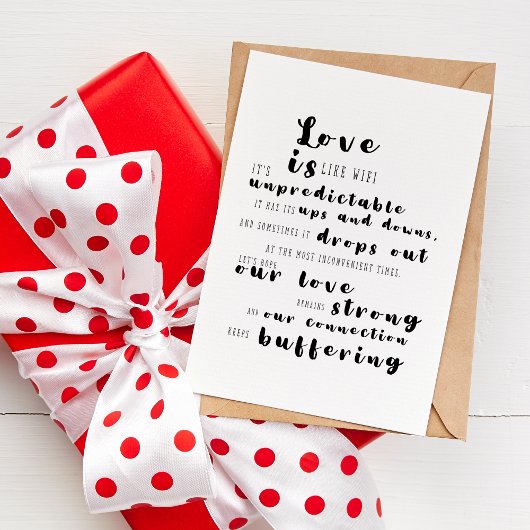 Love
is LIKE WIFI
IT'S
unpredictable
IT HAS ITS ups and downs,
AND SOMETIMES IT drops out
AT THE MOST INCONVENIENT TIMES.
LET'S HOPE
our love
REMAINS strong
AND our connection
KEEPS buffering